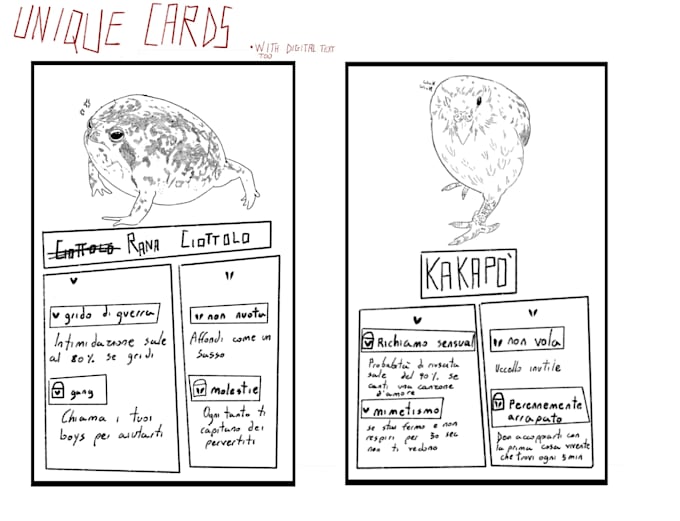 UNIQUE CARDS
• WITH DIGITAL TEXT
TOO
Ciottolo RANA CIOTTOLO
grido di guerra
Intimidazione sale
al 80% se gridi
gang
Chiama i tuoi
boys per aiutarti
non nuota
Affondi come un
sasso
molestie
Ogni tanto ti
capitano dei
pervertiti
KAKAPO'
Richiamo sensual
Probabilità di riuscita
sale del 90% se
canti una canzone
d'amore
mimetismo
se stai fermo e non
respiri per 30 sec
non ti vedono
non vola
Uccello inutile
Perennemente
arrapato
Devi accoppiarti con
la prima cosa vivente
che trovi ogni 5 min